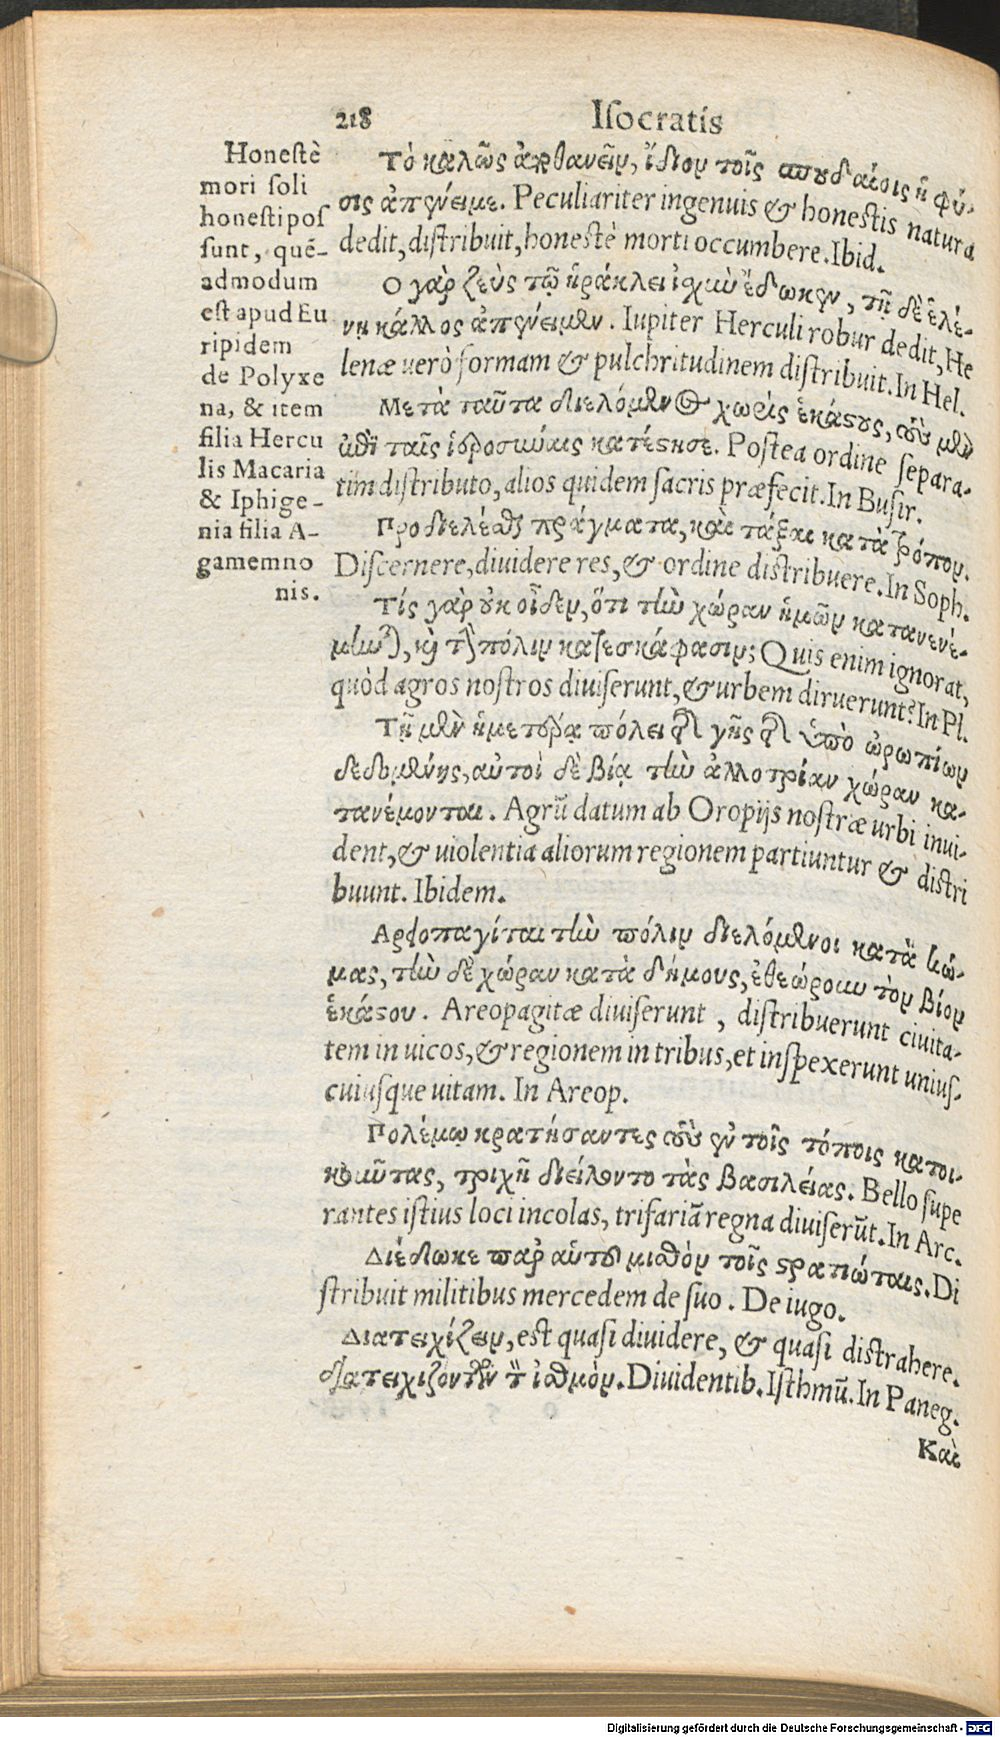 218 Iſocratis
Honeſtè
mori ſoli
honeſti poſ
ſunt, quē-
admodum
eſt apud Eu
ripidem
de Polyxe
na, & item
filia Hercu
lis Macaria
& Iphige-
nia filia A-
gamemno
nis.
Τὸ καλῶς ἀποθανεῖν, ἴδιον τοῖς σπουδαίοις ἡ φύ-
σις ἀπένειμε. Peculiariter ingenuis & honeſtis natura
dedit, diſtribuit, honeſtè morti occumbere. Ibid.
Ο γὰρ ζεὺς τῷ ἡράκλει ἰχὺν ἔδωκεν, τῇ δὲ ἑλέ-
νῃ κάλλος ἀπένειμεν. Iupiter Herculi robur dedit, He
lenæ verò formam & pulchritudinem diſtribuit. In Hel.
Μετὰ ταῦτα διελόμενος χωρὶς ἑκάστους, οὓς μὲν
ἐπὶ ταῖς ἱεροσύναις κατέστησε. Poſtea ordine ſepara-
tim diſtributo, alios quidem ſacris præfecit. In Buſir.
Προδιελέσθαι πράγματα, καὶ τάξαι κατὰ τρόπον.
Diſcernere, diuidere res, & ordine diſtribuere. In Soph.
Τίς γὰρ οὐκ οἶδεν, ὅτι τὴν χώραν ἡμῶν κατανενέ-
μηνται, καὶ τὴν πόλιν κατεσκάφασιν; Quis enim ignorat,
quòd agros noſtros diuiſerunt, & urbem diruerunt? In Pl.
Τῇ μὲν ἡμετέρᾳ πόλει τῆς γῆς τῆς ὑπὸ ὠρωπίων
δεδομένης, αὐτοὶ δὲ βίᾳ τὴν ἀλλοτρίαν χώραν κα-
τανέμονται. Agrũ datum ab Oropijs noſtræ urbi inui-
dent, & uiolentia aliorum regionem partiuntur & diſtri
buunt. Ibidem.
Αρεοπαγίται τὴν πόλιν διελόμενοι κατὰ κώ-
μας, τὴν δὲ χώραν κατὰ δήμους, ἐθεώρουν τὸν βίον
ἑκάστου. Areopagitæ diuiſerunt, diſtribuerunt ciuita-
tem in uicos, & regionem in tribus, et inſpexerunt unius-
cuiuſque uitam. In Areop.
Πολέμῳ κρατήσαντες τοὺς ἐν τοῖς τόποις κατοι-
κοῦντας, τριχῇ διείλοντο τὰς βασιλείας. Bello ſupe
rantes iſtius loci incolas, trifariã regna diuiſerũt. In Arc.
Διέδωκε παρ αὑτοῦ μισθὸν τοῖς στρατιώταις. Di
ſtribuit militibus mercedem de ſuo. De iugo.
Διατειχίζειν, eſt quaſi diuidere, & quaſi diſtrahere.
διατειχιζόντων τὸν ἰσθμόν. Diuidentib. Iſthmũ. In Paneg.
Καὶ
Digitalisierung gefördert durch die Deutsche Forschungsgemeinschaft - DFG